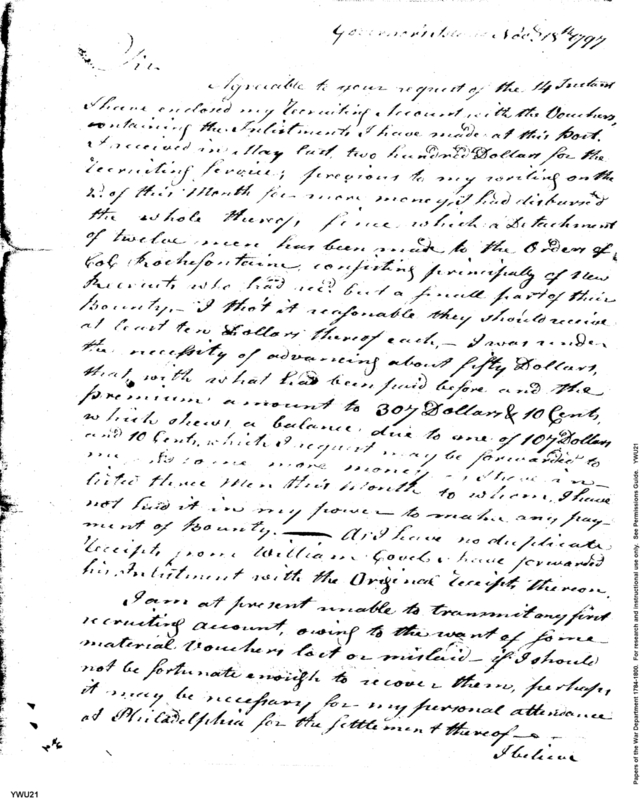 Governors Island Novr 18th 1797
Sir
Agreeable to your request of the 14 Instant
I have enclosed my Recruiting Account with the Vouchers,
containing the Inlistments I have made at this Post.
I received in May last, two hundred Dollars for the
Recruiting Service; previous to my writing on the
2d of this Month for more money, I had disburs'd
the whole thereof, since which a Detachment
of twelve men has been made to the Orders of
Col Rochefontaine, consisting principally of New
Recruits who had recd but a small part of their
Bounty, – I tho't it reasonable they should receive
at least ten Dollars thereof each, – I was under
the necessity of advancing about fifty Dollars,
that, with what had been paid before and the
premium amount to 307 Dollars & 10 Cents,
which shews a balance due to me of 107 Dollars
and 10 Cents, which I request may be forwarded to
me, & some more money – I have in-
listed three Men this Month to whom, I have
not had it in my power to make any pay-
ment of Bounty. — As I have no duplicate
Receipts from William have forwarded
his Inlistment with the Original Receipts thereon.
I am at present unable to transmit my first
recruiting account, owing to the want of some
material Vouchers lost or mislaid – if I should
not be fortunate enough to recover them, perhaps
it may be necessary for my personal attendance
at Philadelphia for the settlement thereof –
I believe
YWU21
Papers of the War Department 1784-1800. For research and instructional use only. See Permissions Guide. YWU21